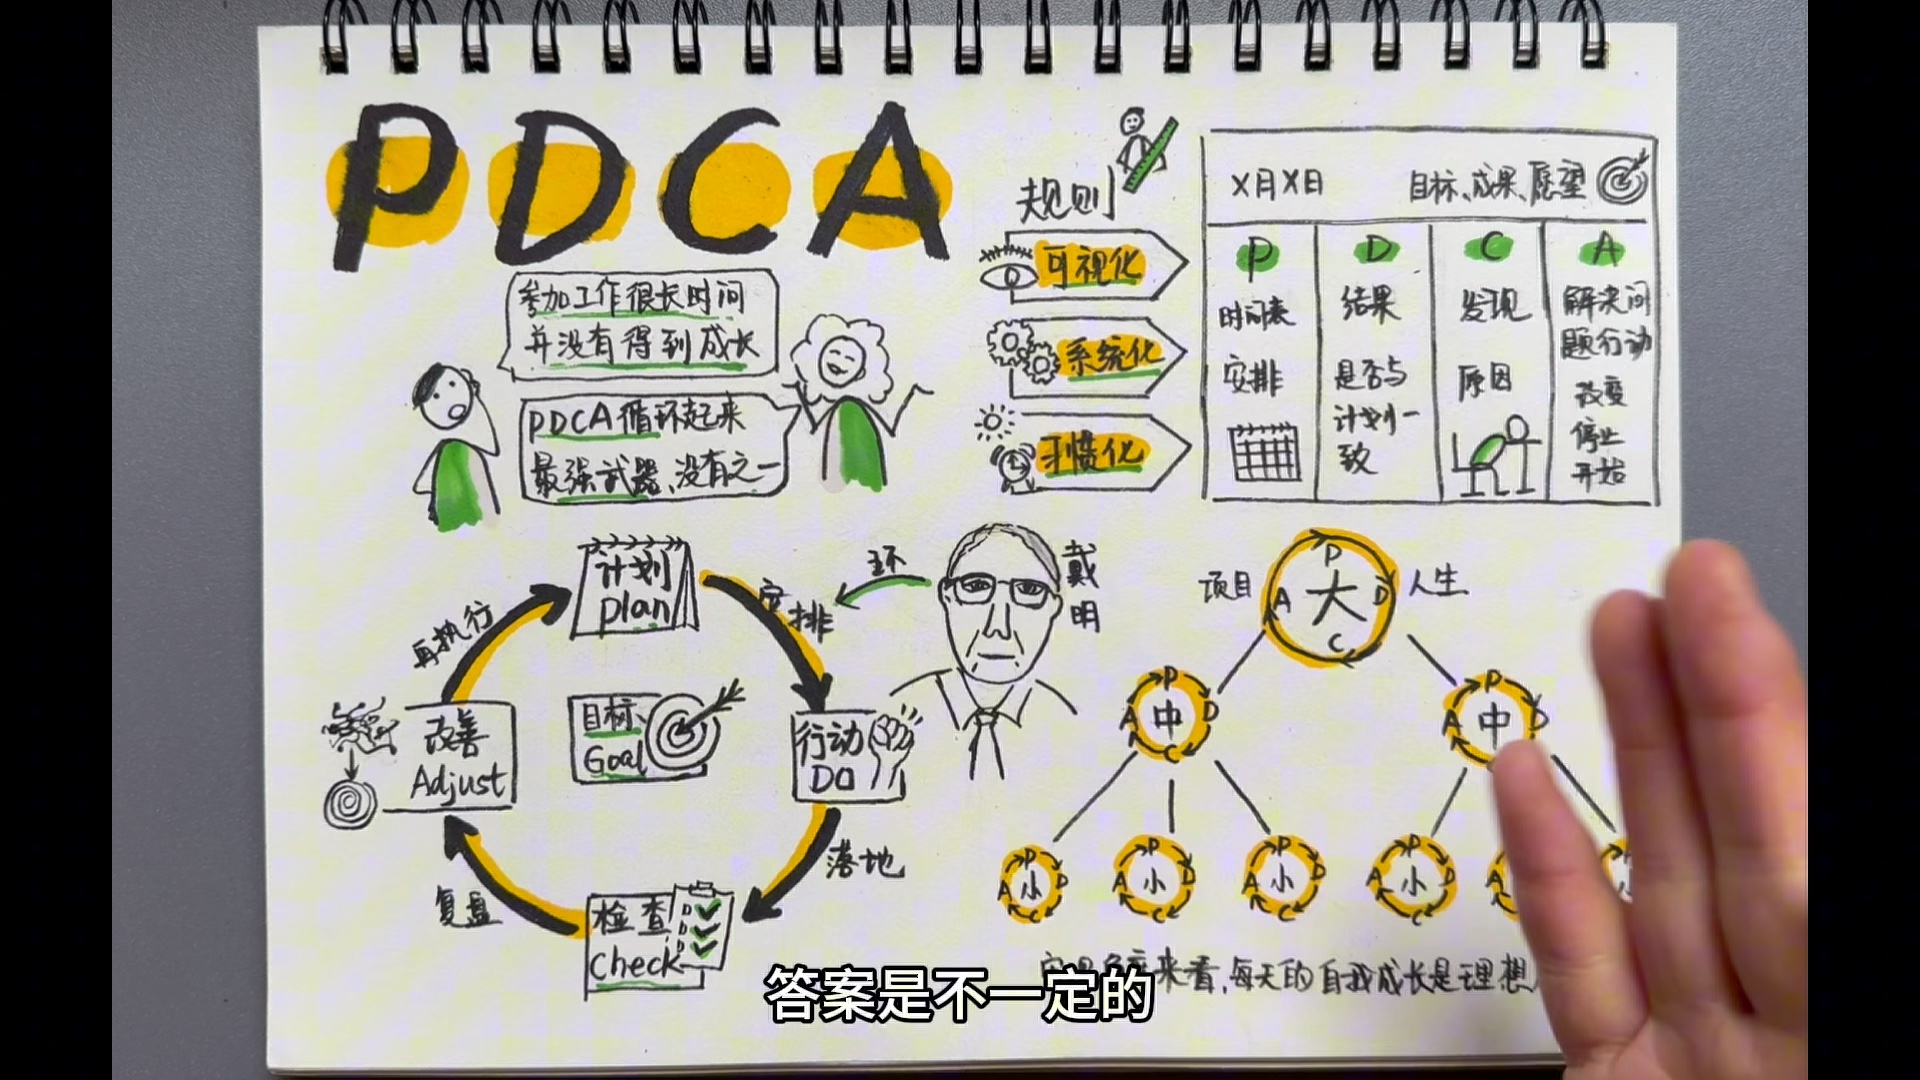 PDCA
参加工作很长时间
并没有得到成长
PDCA循环起来
最强武器、没有之一
规则
可视化
系统化
习惯化
X月X日
目标、成果、愿望
P
D
C
A
时间表
安排
结果
是否与
计划一
致
发现
原因
解决问
题行动
改变
停止
开始
计划
plan
安排
行动
DO
落地
检查
Check
复盘
改善
Adjust
再执行
目标、
Goal
环
戴
明
项目
人生
P
A 大 D
C
P
A 中 D
C
P
A 中 D
P
A 小 D
C
P
A 小 D
C
P
A 小 D
C
P
A 小 D
C
A
来看,每天的自我成长是理想
答案是不一定的